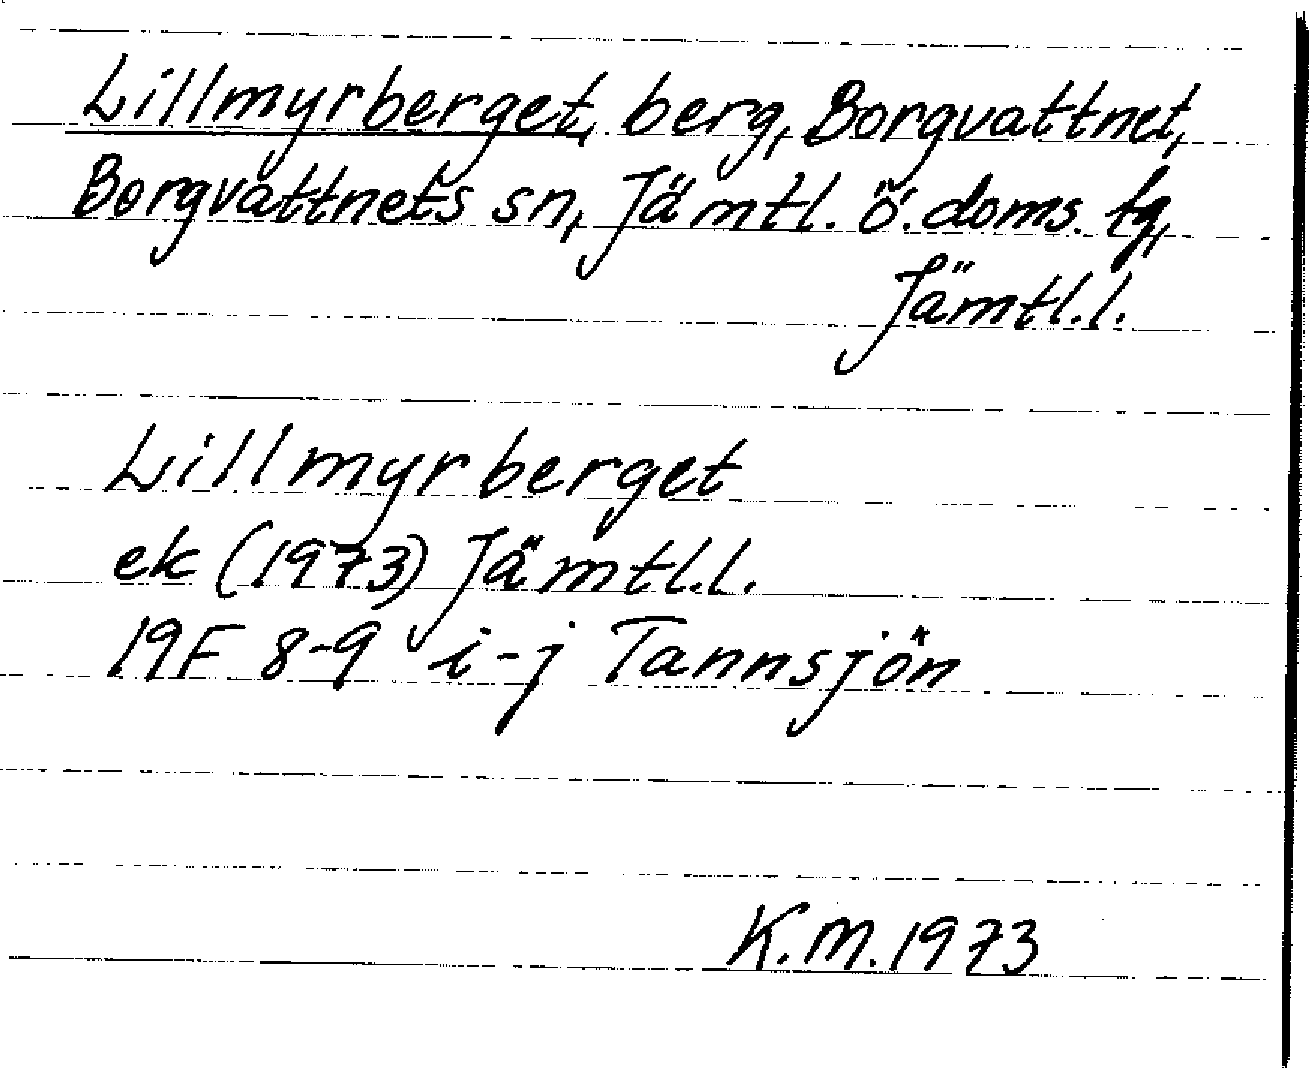 Lillmyrberget, berg, Borgvattnet,
Borgvattnets sn, Jämtl. ö. doms. tg,
Jämtl. l.
Lillmyrberget
ek (1973) Jämtl. l.
19F 8-9 i-j Tannsjön
K.M. 1973